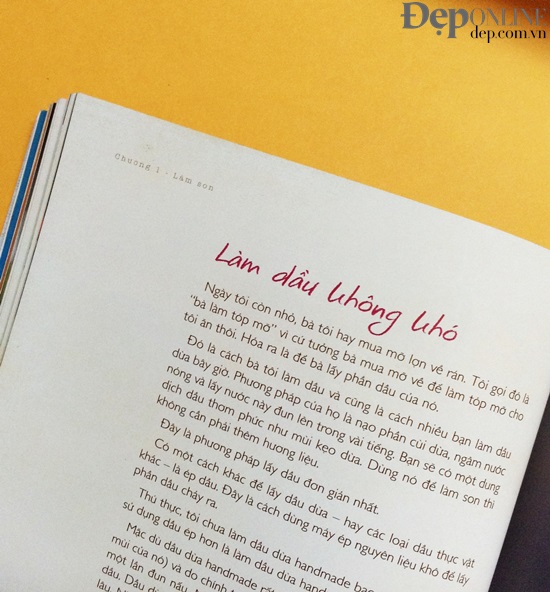 Đẹp ONLINE
dep.com.vn
Chương 1 . Làm son
Làm dầu không khó
Ngày tôi còn nhỏ, bà tôi hay mua mỡ lợn về rán. Tôi gọi đó là
"bà làm tóp mỡ" vì cứ tưởng bà mua mỡ về để làm tóp mỡ cho
tôi ăn thôi. Hóa ra là để bà lấy phần dầu của nó.
Đó là cách bà tôi làm dầu và cũng là cách nhiều bạn làm dầu
dừa bây giờ. Phương pháp của họ là nạo phần cùi dừa, ngâm nước
nóng và lấy nước này đun lên trong vài tiếng. Bạn sẽ có một dung
dịch dầu thơm phức như mùi kẹo dừa. Dùng nó để làm son thì
không cần phải thêm hương liệu.
Đây là phương pháp lấy dầu đơn giản nhất.
Có một cách khác để lấy dầu dừa – hay các loại dầu thực vật
khác – là ép dầu. Đây là cách dùng máy ép nguyên liệu khô để lấy
phần dầu chảy ra.
Thú thực, tôi chưa làm dầu dừa handmade bao
sử dụng dầu ép hơn là làm dầu dừa hand
Mặc dù dầu dừa handmade rất
mùi của nó) và do chính
một lần đun nấu,
dầu. Dầu dừ
lâu.